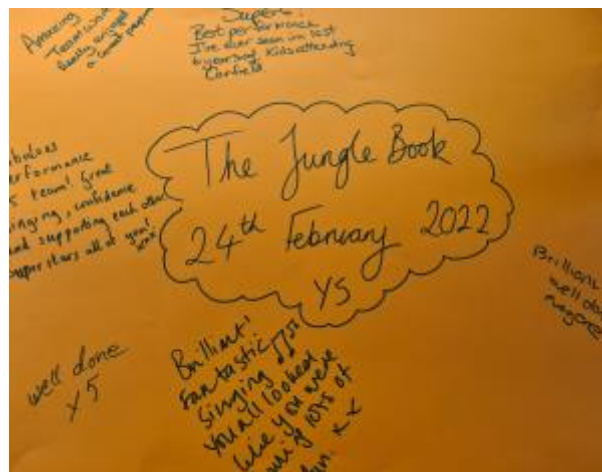 Amazing
Team work
Really enjoyed
Superb!
Best performance
I've ever seen in last
6 years of kids attending
Canfield.
The Jungle Book
24th February 2022
Y5
bulous
erformance
5 team! Great
inging, confidence
and supporting each other
uper stars all of you!
Brilliant
well do
well done
Y5
Brilliant!
Fantastic
singing
You all looked
like you were
ing lots of
xx